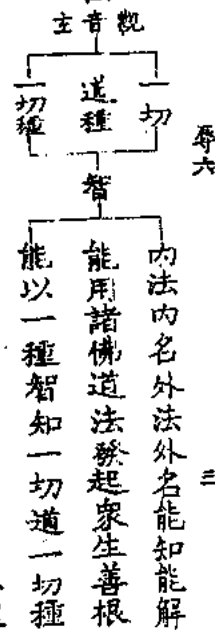 觀音主
一切
道種
一切種
智
內法內名外法外名能知能解
能用諸佛道法發起衆生善根
能以一種智知一切道一切種
辱六
三